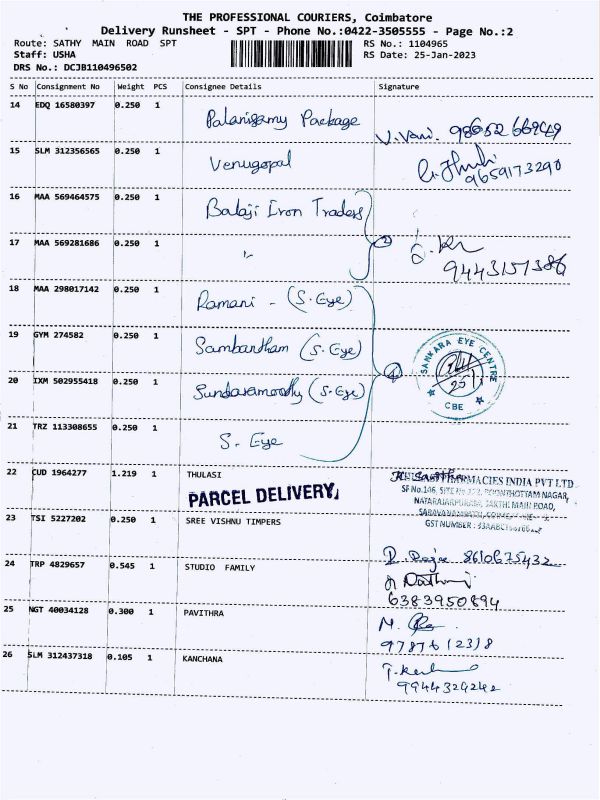 THE PROFESSIONAL COURIERS, Coimbatore
Delivery Runsheet - SPT - Phone No.:0422-3505555 - Page No.:2
Route: SATHY MAIN ROAD SPT
RS No.: 1104965
Staff: USHA
RS Date: 25-Jan-2023
DRS No.: DCJB110496502
S No Consignment No Weight PCS Consignee Details Signature
14 EDQ 16580397 0.250 1 Palanisamy Package
V. Vani. 98652 66949
15 SLM 312356565 0.250 1 Venugopal
9659173290
16 MAA 569464575 0.250 1 Balaji Iron Traders
17 MAA 569281686 0.250 1 〃
2
9443151386
18 MAA 298017142 0.250 1 Ramani - (S. Eye)
19 GYM 274582 0.250 1 Sambantham (S. Eye)
20 IXM 502955418 0.250 1 Sundaramoorthy (S. Eye)
4
SANKARA EYE CENTRE
25/1
CBE
21 TRZ 113308655 0.250 1 S. Eye
22 CUD 1964277 1.219 1 THULASI
PHARMACIES INDIA PVT LTD
PARCEL DELIVERY
SF No.106, POONTHOTTAM NAGAR,
SAKTHI MAIN ROAD,
GST NUMBER :
23 TSI 5227202 0.250 1 SREE VISHNU TIMPERS
8610675432
24 TRP 4829657 0.545 1 STUDIO FAMILY
6383950894
25 NGT 40034128 0.300 1 PAVITHRA
9787612318
26 SLM 312437318 0.105 1 KANCHANA
9944329242